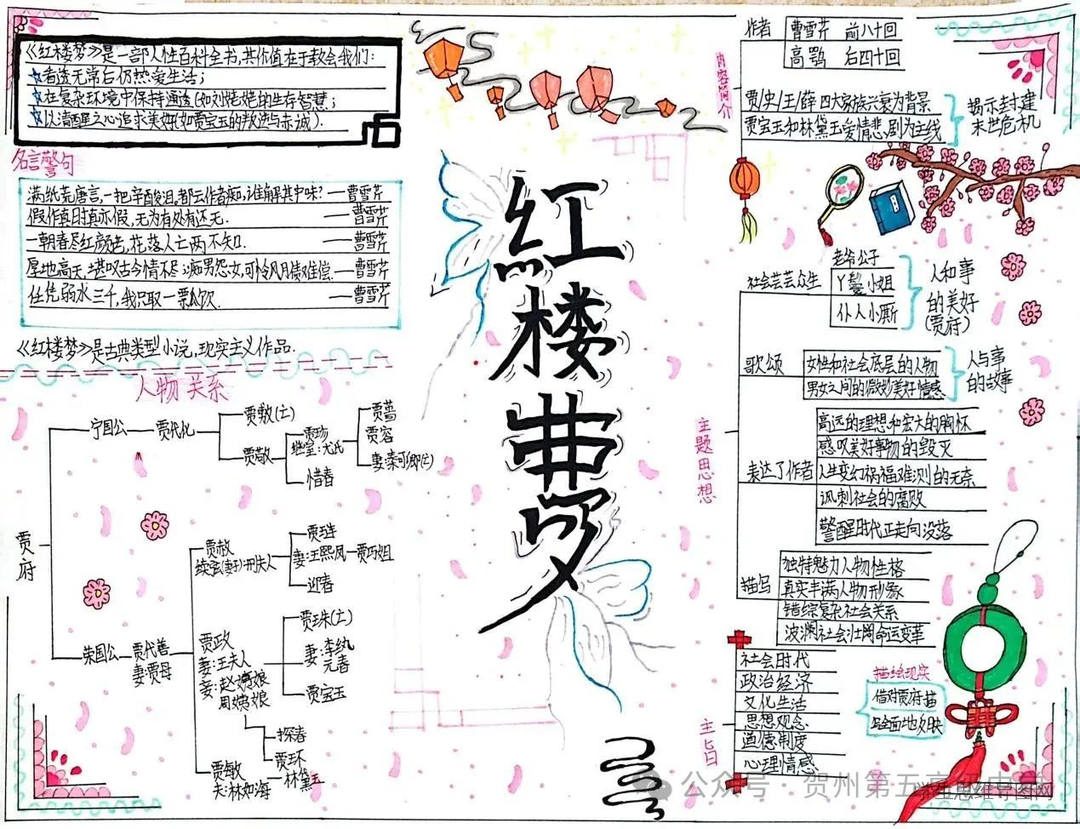 《红楼梦》是一部人性百科全书,其价值在于教会我们:
看透无常后仍热爱生活;
在复杂环境中保持通透(如刘姥姥的生存智慧;
以清醒之心追求美好(如贾宝玉的叛逆与赤诚).
名言警句
满纸荒唐言,一把辛酸泪,都云作者痴,谁解其中味.——曹雪芹
假作真时真亦假,无为有处有还无. ——曹雪芹
一朝春尽红颜老,花落人亡两不知. ——曹雪芹
厚地高天,堪叹古今情不尽;痴男怨女,可怜风月债难偿.——曹雪芹
任凭弱水三千,我只取一瓢饮. ——曹雪芹
《红楼梦》是古典类型小说,现实主义作品.
人物关系
贾府
宁国公
贾代化
贾敷(亡)
贾敬
贾珍
继室:尤氏
惜春
贾蔷
贾容
妻:秦可卿(亡)
荣国公
贾代善
妻:贾母
贾赦
续室(妻子):邢夫人
贾琏
妻:王熙凤
贾巧姐
迎春
贾政
妻:王夫人
妾:赵姨娘
周姨娘
贾珠(亡)
妻:李纨
元春
贾宝玉
探春
贾环
贾敏
夫:林如海
林黛玉
红楼梦
内容简介
作者
曹雪芹 前八十回
高鹗 后四十回
贾/史/王/薛四大家族兴衰为背景
贾宝玉和林黛玉爱情悲剧为主线
揭示封建
末世危机
主题思想
社会芸芸众生
老爷公子
丫鬟小姐
仆人小厮
人和事
的美好
(贾府)
歌颂
女性和社会底层的人物
男女之间的微妙美好情感
人与事
的故事
表达了作者
高远的理想和宏大的胸怀
感叹美好事物的毁灭
人生变幻祸福难测的无奈
讽刺社会的腐败
警醒时代正走向没落
描写
独特魅力人物性格
真实丰满人物形象
错综复杂社会关系
波澜社会壮阔命运变革
主旨
社会时代
政治经济
文化生活
思想观念
道德制度
心理情感
描绘现实
借对贾府描
写全面地反映
公众号·贺州第五高级中学